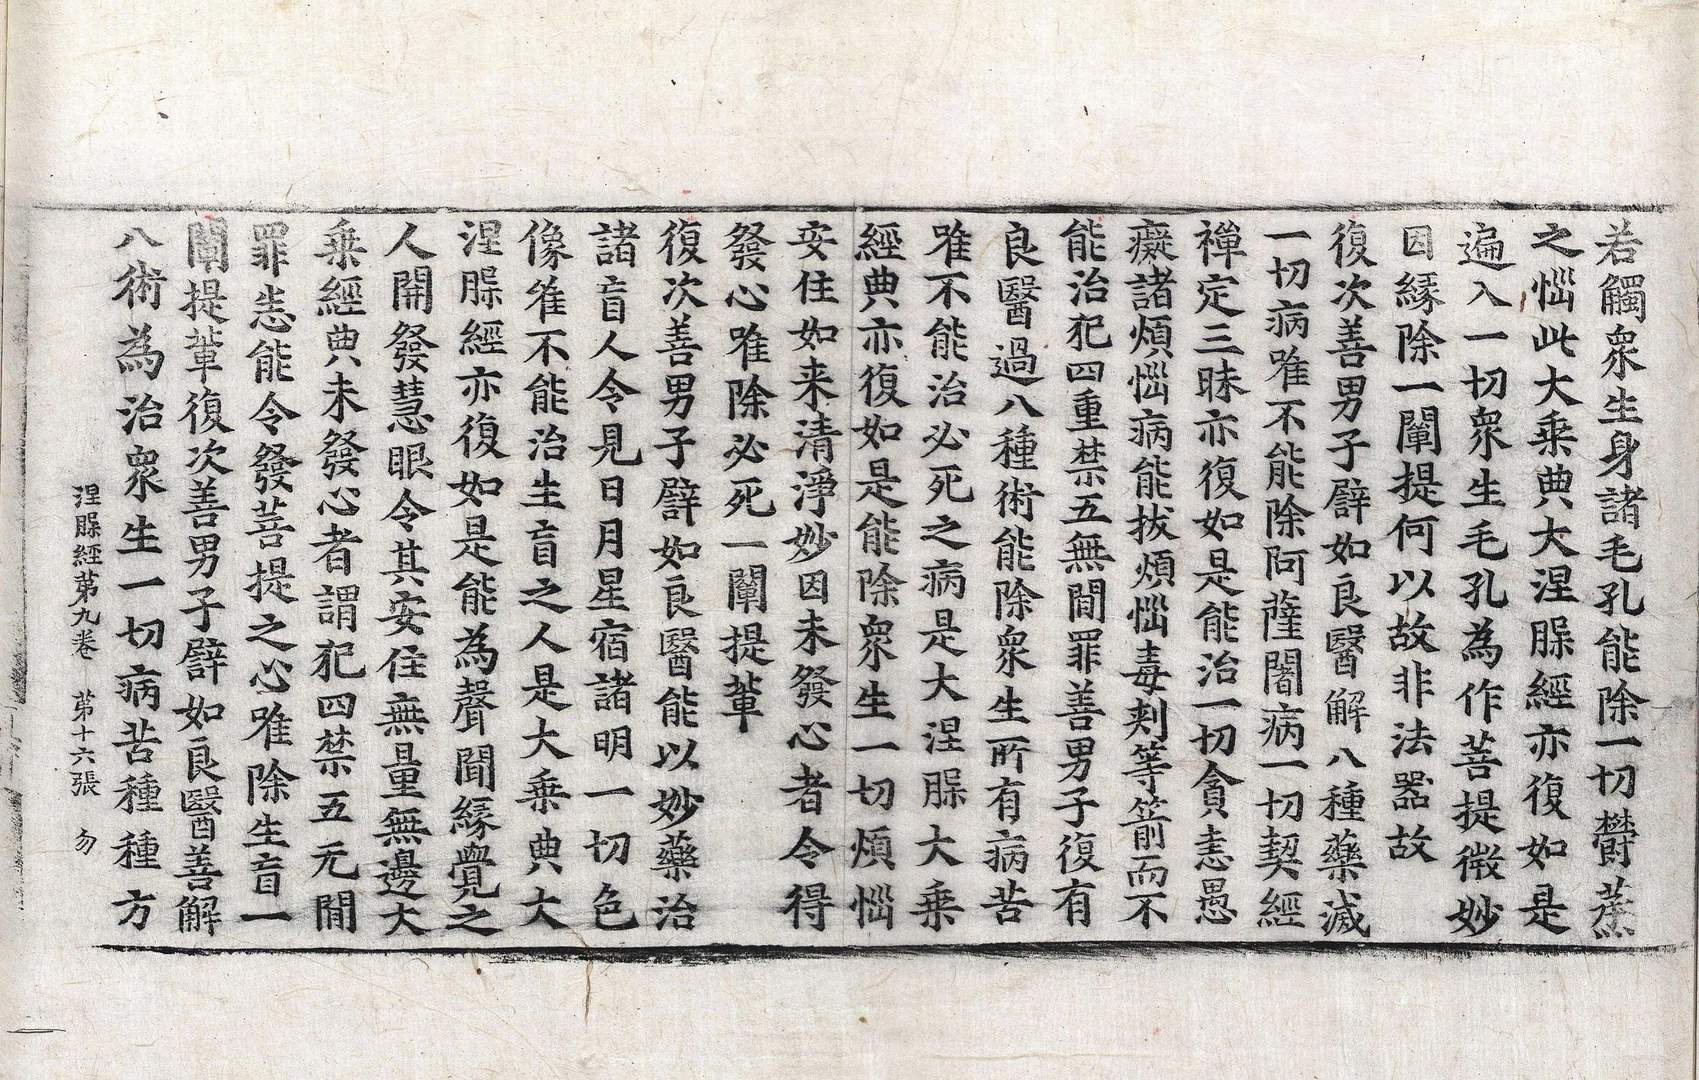 若觸衆生身諸毛孔能除一切欝蒸
之惱此大乗典大涅槃經亦復如是
遍入一切衆生毛孔為作菩提微妙
因縁除一闡提何以故非法器故
復次善男子譬如良醫解八種藥滅
一切病唯不能除阿薩闍病一切契經
禪定三昧亦復如是能治一切貪恚愚
癡諸煩惱病能拔煩惱毒刺等箭而不
能治犯四重禁五無間罪善男子復有
良醫過八種術能除衆生所有病苦
唯不能治必死之病是大涅槃大乗
經典亦復如是能除衆生一切煩惱
安住如来清淨妙因未發心者令得
發心唯除必死一闡提輩
復次善男子譬如良醫能以妙藥治
諸盲人令見日月星宿諸明一切色
像唯不能治生盲之人是大乗典大
涅槃經亦復如是能為聲聞縁覺之
人開發慧眼令其安住無量無邊大
乗經典未發心者謂犯四禁五无間
罪悉能令發菩提之心唯除生盲一
闡提輩復次善男子譬如良醫善解
八術為治衆生一切病苦種種方
涅槃經苐九卷　苐十六張　勿